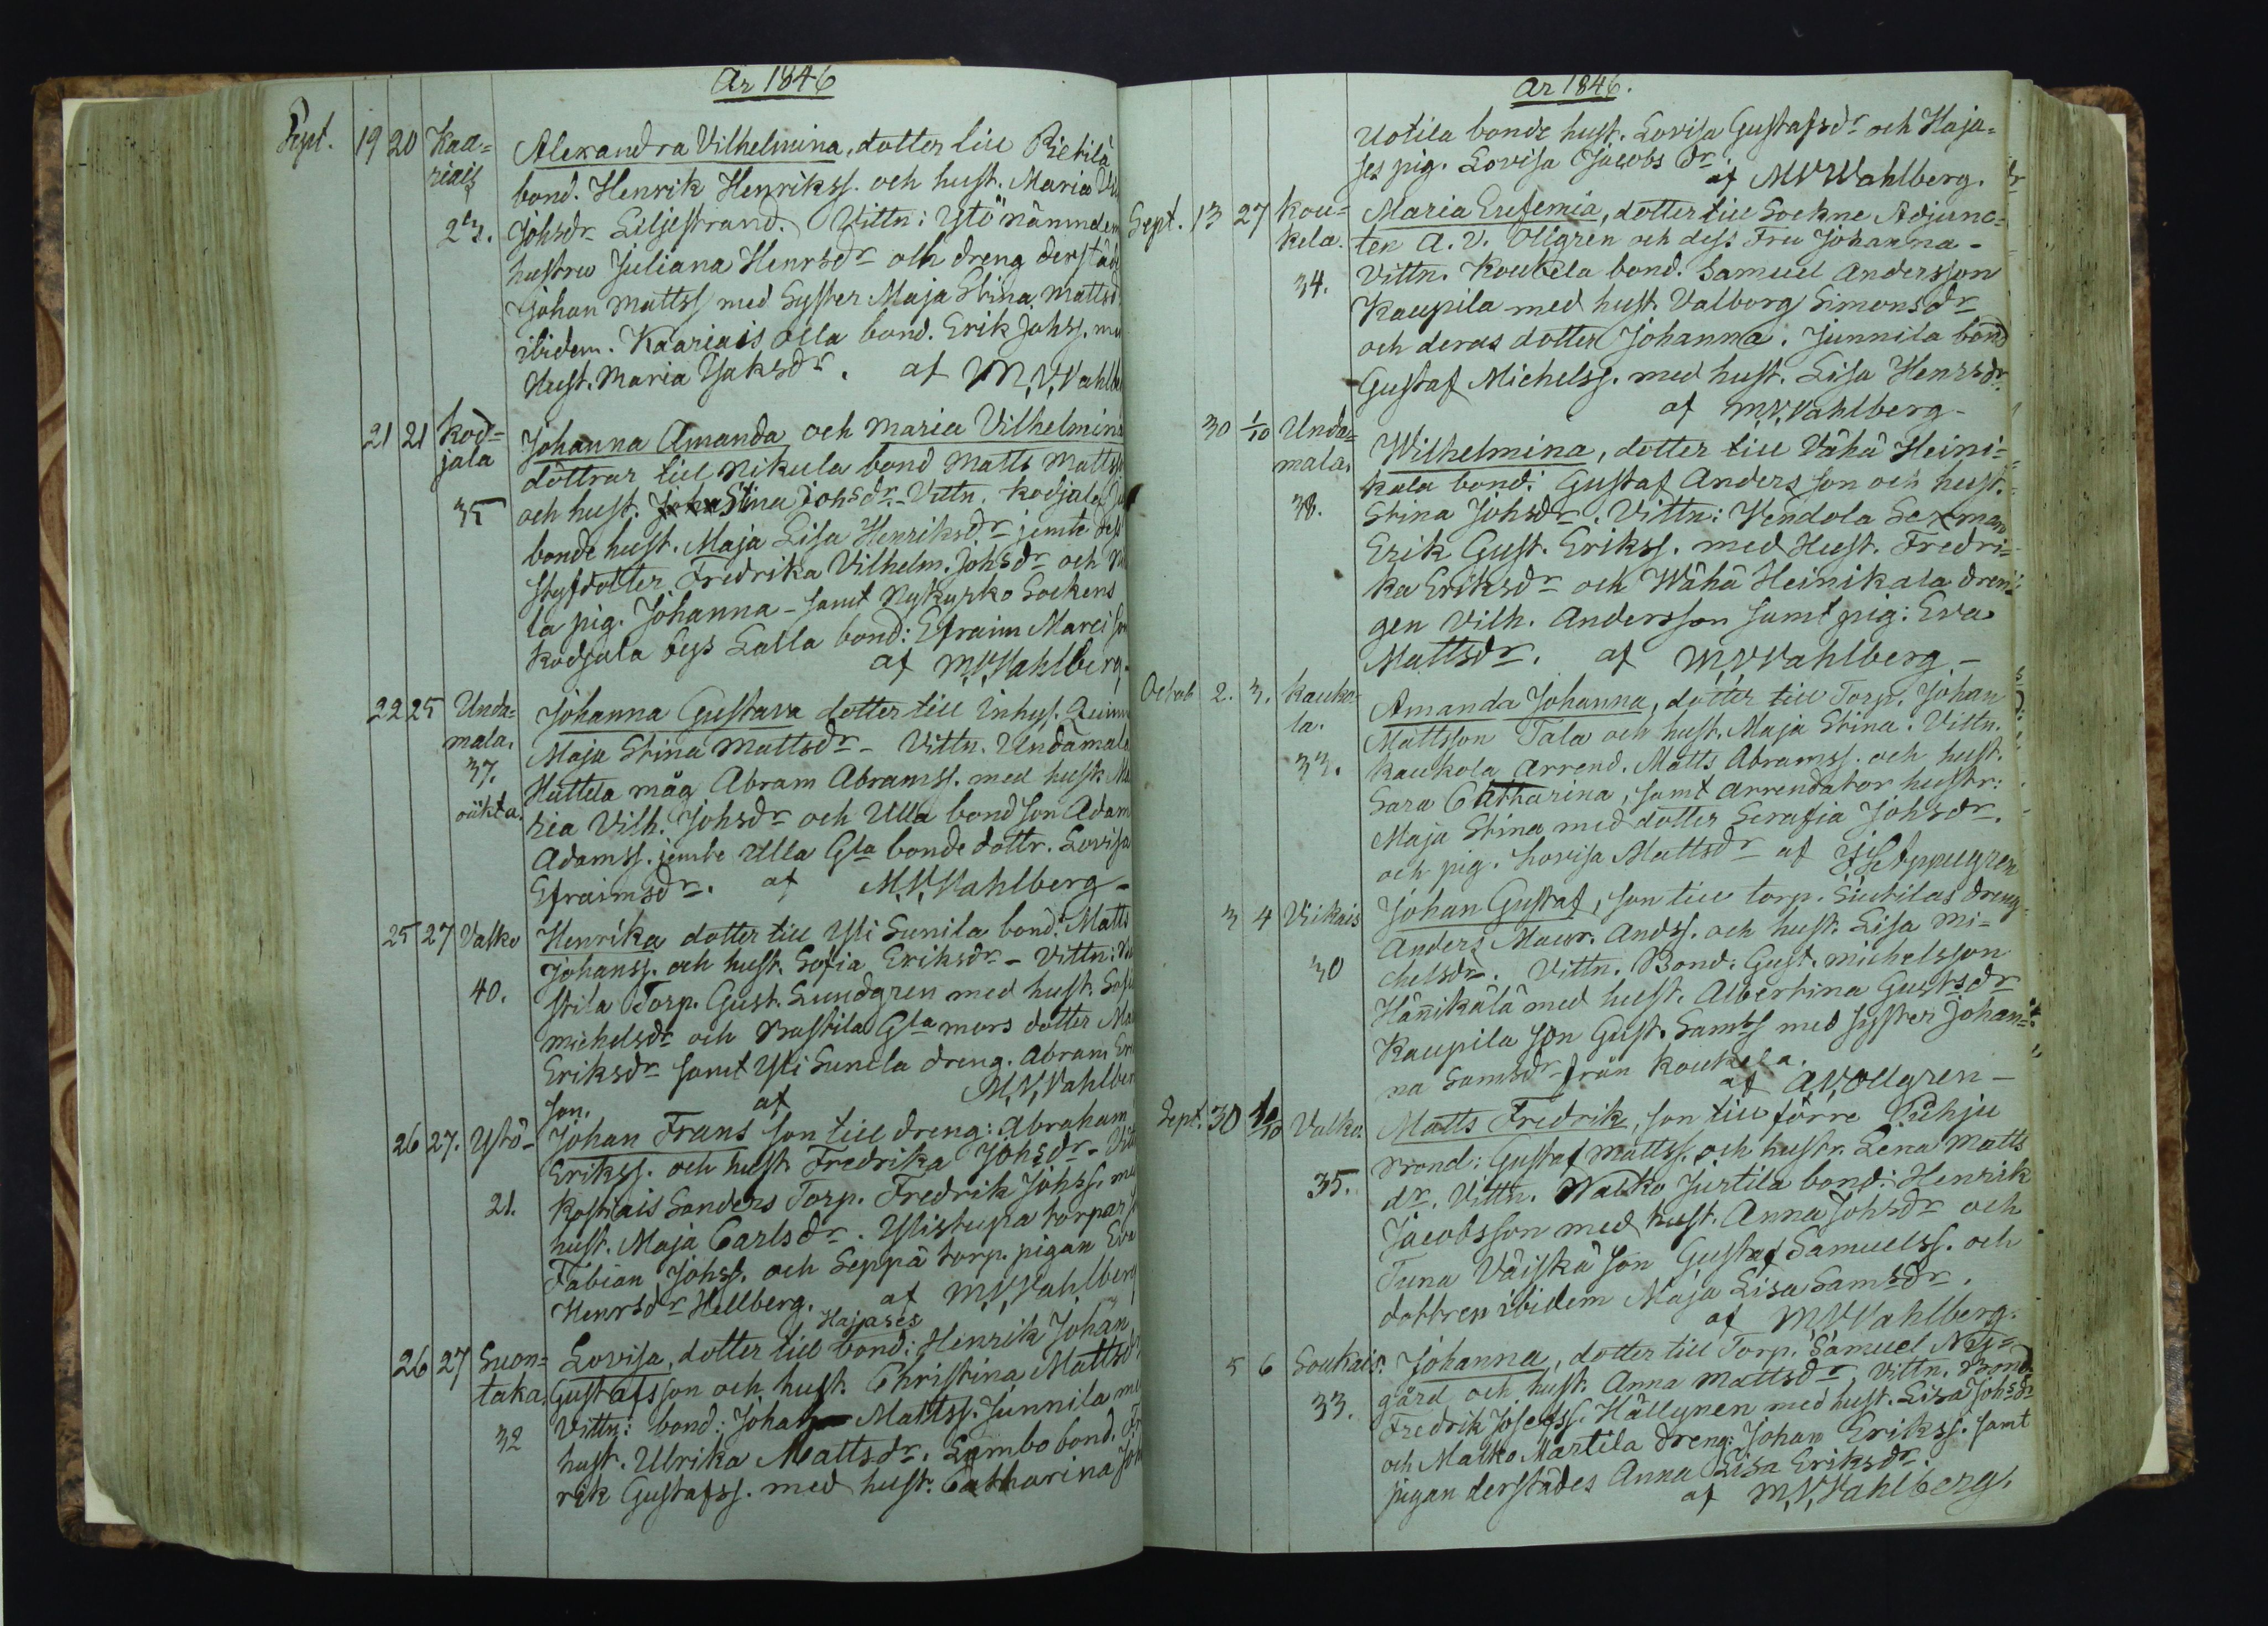 År 1846
Sept. 19 20 Kaa= Alexandra Vilhelmina, dotter till Pietilä
riais bond. Henrik Henrikss. och hust. Maria
Johsdr Liljestrand. Vittn: Ytö nämndem
hustru Juliana Henrsdr och dreng derstäd
Johan Mattss med Syster Maja Stina Mattsd
ibidem. Kaariais Olla bond. Erik Johss. me
Hust. Maria Isaksdr. af M.V. Vahlbe
21 21 Kod= Johanna Amanda och Maria Vilhelmina
jala döttrar till Nikula bond Matts Mattss
35 och hust. Stina Johsdr - Vittn. Kodjala
bonde hust. Maja Lisa Henriksdr jemte dess
styfdotter Fredrika Vilhelm. Johsdr och
la pig. Johanna - samt Nykyrko Sockens
Kodjala bys Lalla bond: Efraim
af M.V. Vahlberg.
22 25 Unda= Johanna Gustava dotter till Inhys. Quinn
mala. Maja Stina Mattsdr - Vittn. Undamala
37. Huttela måg Abram Abramss. med hust. Ma
oäkta. ria Vilh. Johsdr och Ulla bond son Adam
Adamss. jemte Ulla Gla bonde dottr. Lovisa
Efraimsdr. af M.V. Vahlberg -
25 27 Valko Henrika dotter till Yli Sunila bond: Matts
Johanss. och hust. Sofia Eriksdr - Vittn:
40. stila Torp. Gust. Lundgren med hust. Sofi
Michelsdr och Bastila Gla mors dotter Ma
Eriksdr samt Yli Sunila dreng. Abram Er
son. af M.V. Vahlber
26 27. Ytö - Johan Frans son till dreng: Abraham
Erikss. och hust. Fredrika Johsdr - Vitt
21. Kostiais Sanders Torp. Fredrik Johss. me
hust. Maja Carlsdr. Ylistupa torpar
Fabian Johss. och Seppä torp. pigan Eva
Henrsdr Hellberg. af M.V. Vahlberg
Hajases
26 27 Suon= Lovisa, dotter till bond: Henrik Johan
taka. Gustafsson och hust. Christina Mattsdr
Vittn: bond: Johan Mattss. Junnila me
32 hust. Ulrika Mattsdr. Lambo bond. Fr
rik Gustafss. med hust. Catharina Joh
År 1846.
Uotila bonde hust. Lovisa Gustafsdr och Haja=
ses pig. Lovisa Jacobsdr. af M V Wahlberg.
Sept. 13 27 Kou= Maria Eufemia, dotter till Sockne Adjunc=
kela. ten A. V. Ollgren och dess Fru Johanna -
34. Vittn. Koukela bond. Samuel Andersson
Kaupila med hust. Valborg Simonsdr
och deras dotter Johanna. Junnila bond
Gustaf Michelss. med hust. Lisa Henrsdr.
af M.V. Vahlberg -
30 1/10 Unda= Wilhelmina, dotter till Vähä Heini=
mala. kala bond: Gustaf Andersson och hust.
38. Stina Johsdr. Vittn: Vendola Sexman
Erik Gust. Erikss. med Hust. Fredri=
ka Eriksdr och Wähä Heinikala dren
gen Vilh. Andersson samt pig: Eva
Mattsdr. af M.V. Vahlberg -
Octob 2. 3. Kauko= Amanda Johanna, dotter till Torp. Johan
la. Mattsson Tala och hust. Maja Stina: Vittn.
33. Kaukola Arrend. Matts Abramss. och hust.
Sara Catharina, samt arrendator hustr:
Maja Stina med dotter Serafia Johsdr.
och pig. Lovisa Mattsdr af
3 4 Viikais Johan Gustaf, son till torp. Siutilas dreng.
Anders Maur. Andss. och hust. Lisa Mi=
30 chelsdr. Vittn. Bond. Gust. Michelsson
Hännikälä med hust. Albertina Gustsdr
Kaupila son Gust. Samss med syster Johan=
na Samsdr från Koukela.
af A.V. Ollgren -
Sept. 30 1/10 Valko. Matts Fredrik, son till förre Puhju
Bond: Gustaf Mattss. och hustr. Lena Matts
35. dr. Vittn. Walko Jurtila bond: Henrik
Jacobsson med hust. Anna Johsdr och
Tuna Väiskä son Gustaf Samuelss. och
dottren ibidem Maja Lisa Samsdr.
af M V Vahlberg.
5 6 Soukais. Johanna, dotter till Torp. Samuel Ny=
gård och hust. Anna Mattsdr, Vittn. Bond
33. Fredrik Josefss. Hällynen med hust. Lisa Johsdr
och Malko Martila dreng: Johan Erikss. samt
pigan derstädes Anna Lisa Eriksdr.
af M.V. Vahlberg.